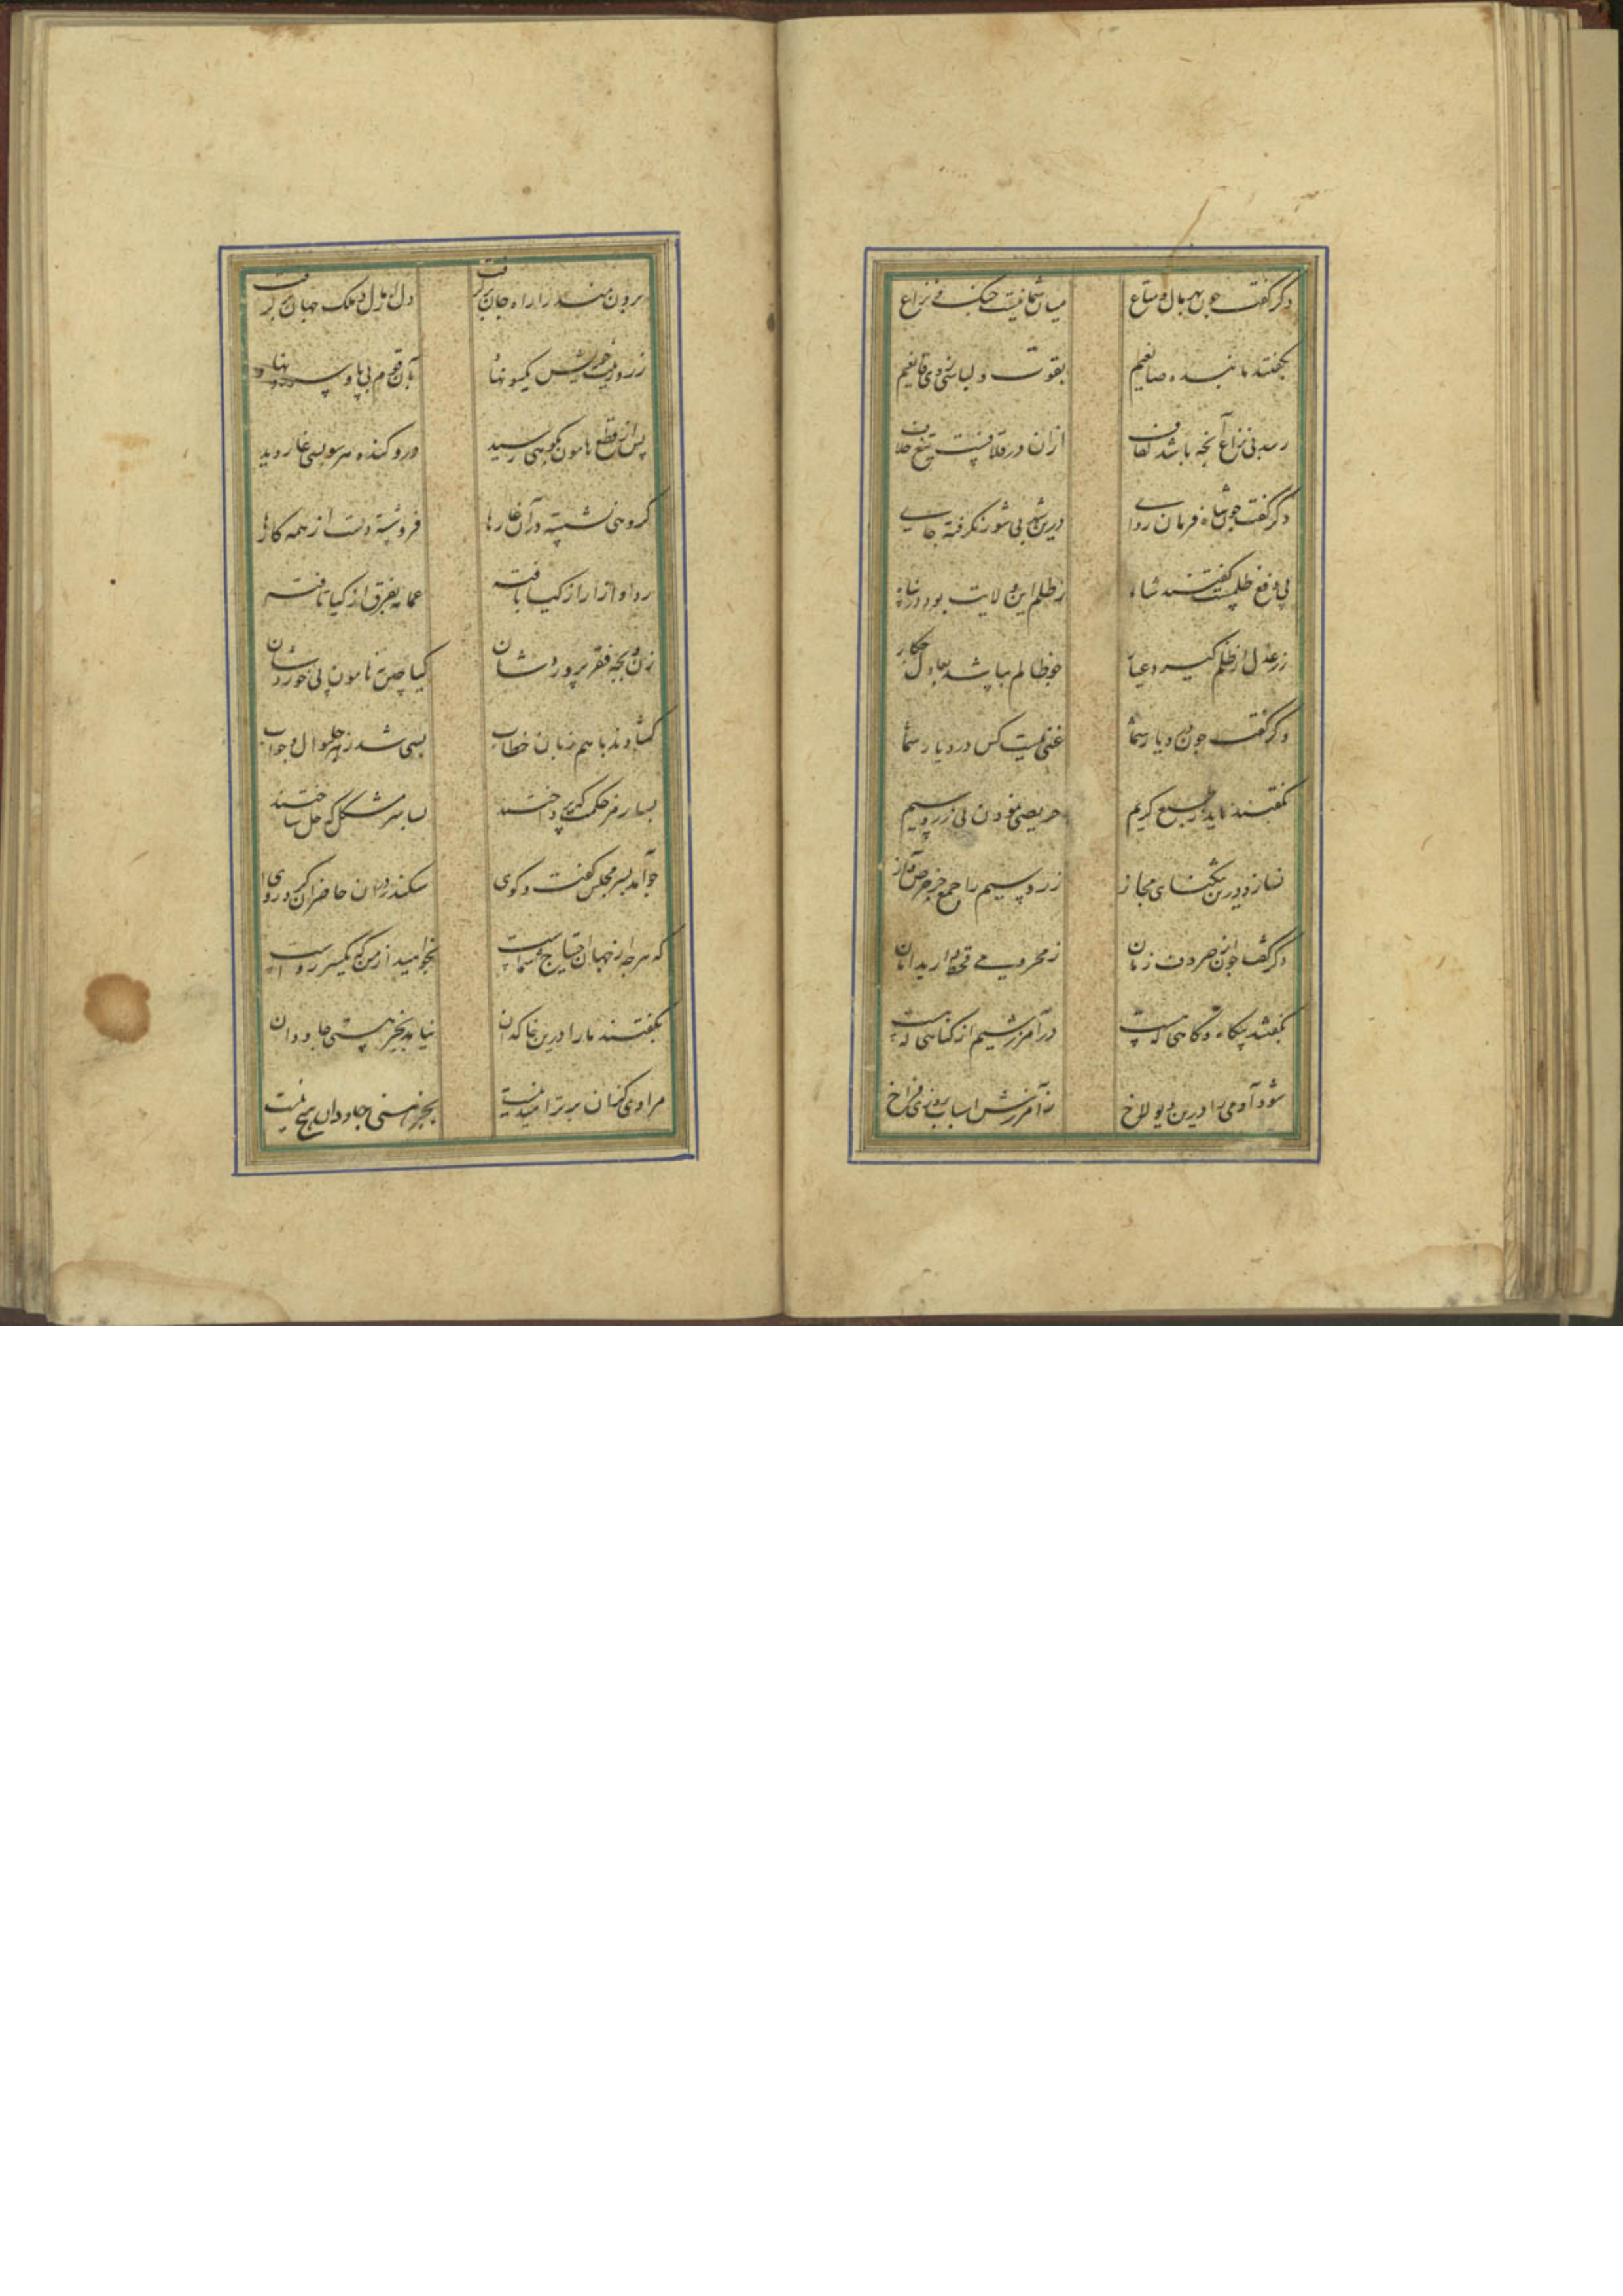 دکر کفت جون بهر مال و متاع میان شما نیست جنک و نزاع
بکفتند ما بنده صانعیم بقوت و لباس ضروری قانعیم
رسد بی نزاع آنجه باشد کفاف ازان در قلا نیست تیغ خلاف
دکر کفت جون شاه فرمان روای درین شهر بی شور نکرفته جای
پی دفع ظلمست کفتند شاه ز ظلم این ولایت بود در پناه
ز عدل از ظلم کیرد عیار جو ظالم نباشد بعادل جکار
دکر کفت جون در دیار شما غنی نیست کس در دیار شما
بکفتند ناید ز طبع کریم حریصی نمودن پی زر و سیم
نسازد درین تنکنای مجاز زر و سیم را جمع جز حرص و آز
دکر کفت جون از صروف زمان ز محرومی قحط دارید امان
بکفتند بیکاه و کاهی که هست در آمرزشیم از کناهی که هست
شود آدمی را درین دیولاخ ز آمرزش اسباب روزی فراخ
برون سکندر را راه جان بر کرفت دل از مال و ملک جهان بر کرفت
ز رو رفت خویش یکسو نهاد بآن قوم بی پا و سر رو نهاد
پس از قطع هامون بکوهی رسید درو کنده هر سو بسی غار دید
کروهی نشسته در آن غارها فرو شسته دست از همه کارها
ردا و ازار از کیا بافته عمامه بفرق از کیا تافته
زن و بجه فقر پروردشان کیا جین هامون پی خوردشان
کشادند با هم زبان خطاب بسی شد ز هر جا سؤال و جواب
بسا رمز حکمت که پرداختند بسا سر مشکل که حل ساختند
جو آمد بسر مجلس کفت و کوی سکندر در آن حاضران کرد روی
که هرجه از جهان احتیاج شماست بخواهید از من که یکسر رواست
بکفتند ما را درین خاکدان نیاید بجز هستی جاودان
مرادی کزان برتر امید نیست بجز هستی جاودان هیچ نیست